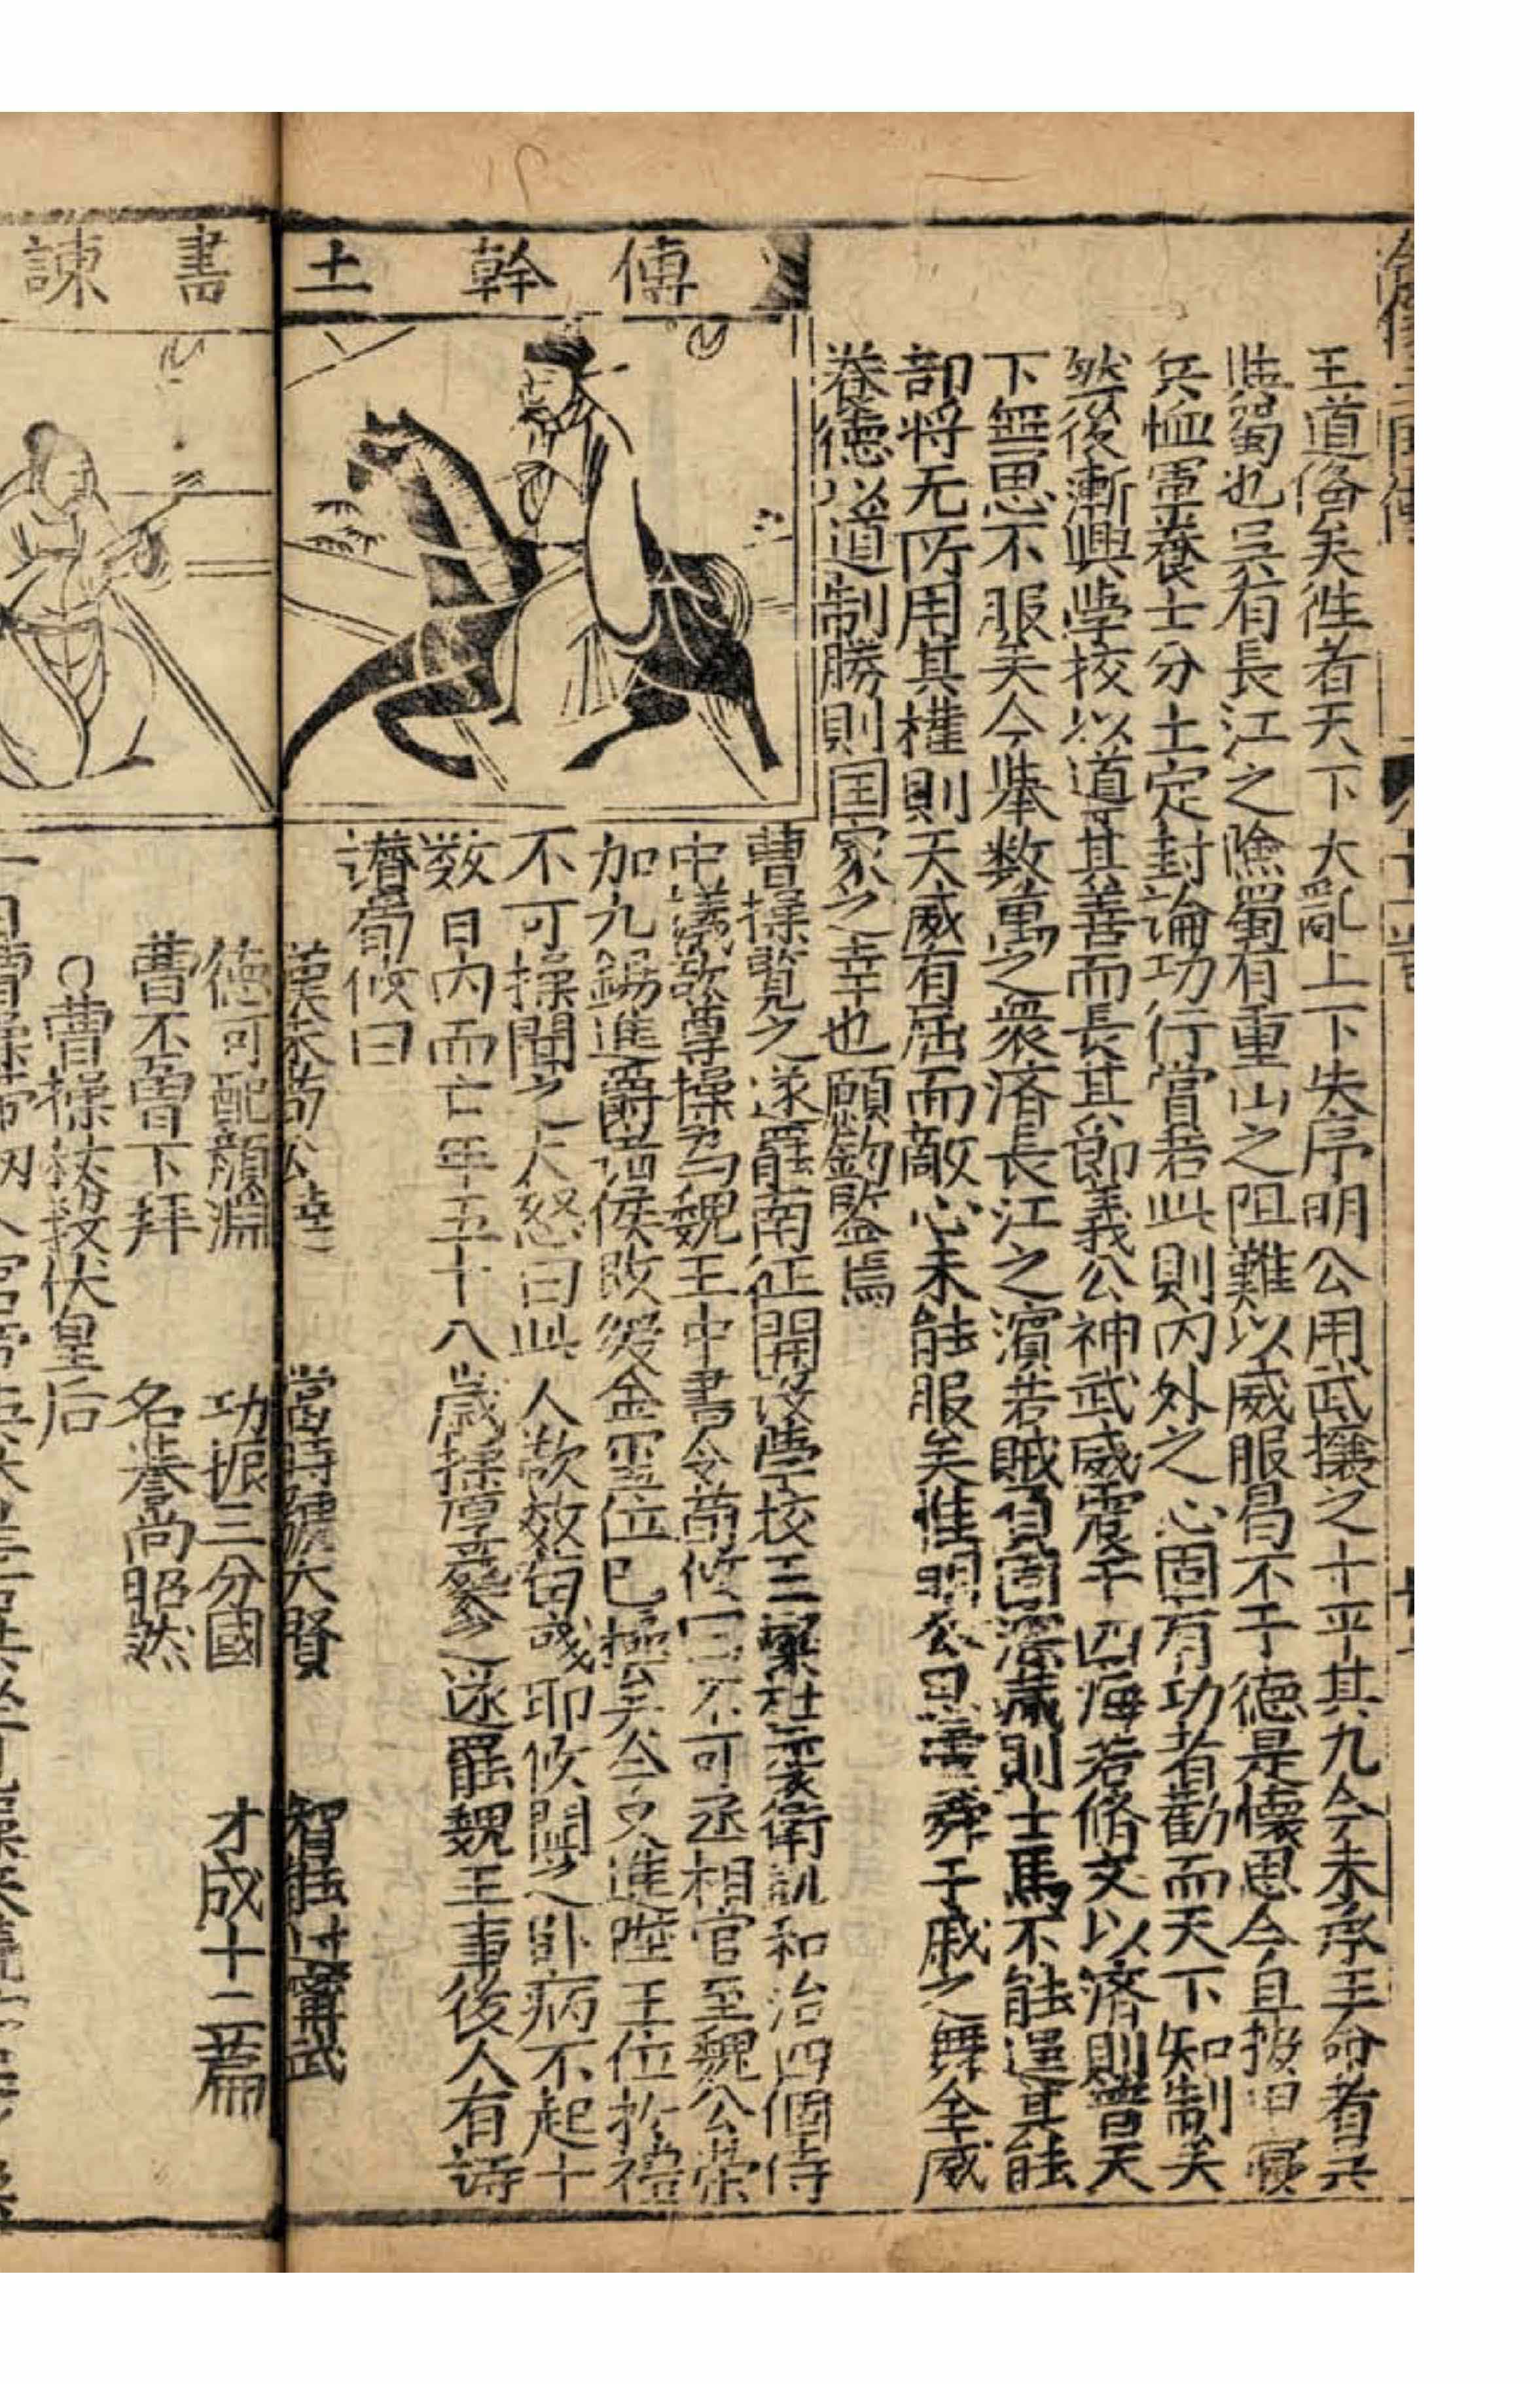 傅幹士
書諫
王道俻矣徃者天下大亂上下失序明公用武攘之十平其九今未承王命者吳
與蜀也吳有長江之險蜀有重山之阻難以威服昜不于德是懷思今且按甲寝
兵恤軍養士分土定封論功行賞若此則内外之心固有功者勸而天下知制矣
然後漸興學校以道其善而長其節義公神武威震于四海若脩文以濟則普天
下無思不服矣今舉数萬之衆濟長江之濱若賊負固深藏則士馬不能逞其能
部将无所用其權則天威有屈而敵心未能服矣惟明公思虞舜予戚之舞全威
養德以道制勝則囯家之幸也願鈞監焉
曹操覽之遂罷南征開設學校王粲杜襲衛凱和洽四個侍
中議欲尊操為魏王中書令荀攸曰不可丞相官至魏公榮
加九錫進爵諸侯敗綬金璽位已極矣今又進陞王位於禮
不可操聞之大怒曰此人欲效荀彧耶攸聞之卧病不起十
数日内而亡年五十八歲操厚葬之遂罷魏王事後人有詩
讃荀攸曰
漢末荀公達 當時號大賢 智能過甯武
德可配顔淵 功振三分國 才成十二篇
曹丕曾下拜 名譽尚昭然
○曹操杖殺伏皇后